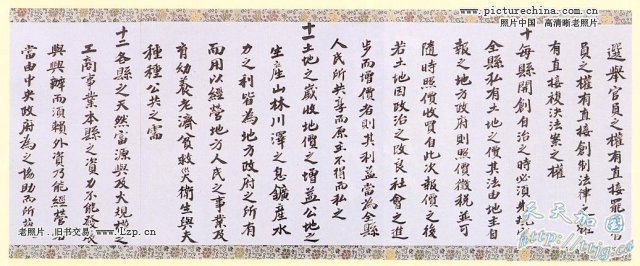 www.picturechina.com.cn
照片中国 - 高清晰老照片
選舉官員之權有直接罷
員之權有直接創制法律之
有直接複決法案之權
十每縣開創自治之時必須先
全縣私有土地之價其法由地主自
報之地方政府則照價徵稅並可
隨時照價收買自此次報價之後
若土地因政治之改良社會之進
步而增價者則其利益當為全縣
人民所共享而原主不得而私之
十一土地之歲收地價之增益公地之
生產山林川澤之息鑛產水
力之利皆為地方政府之所有
而用以經營地方人民之事業及
育幼養老濟貧救災衛生與夫
種種公共之需
十二各縣之天然富源與及大規模之
工商事業本縣之資力不能發展
與興辦而須賴外資乃能經營
當由中央政府為之協助而所
老照片、旧书交易 www.Lzp.cn
天天加图
http://ttjg.cn